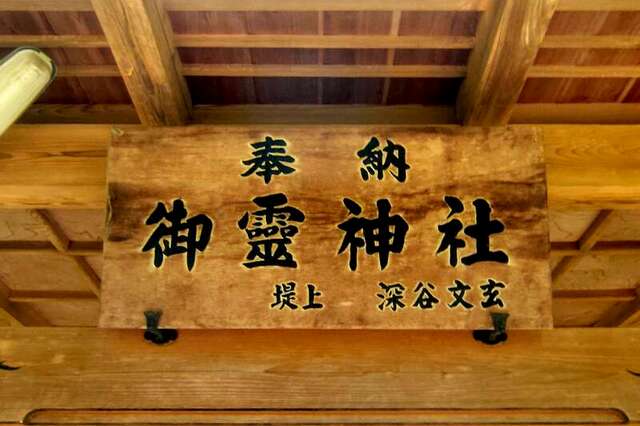 奉納
御靈神社
堤上 深谷文玄